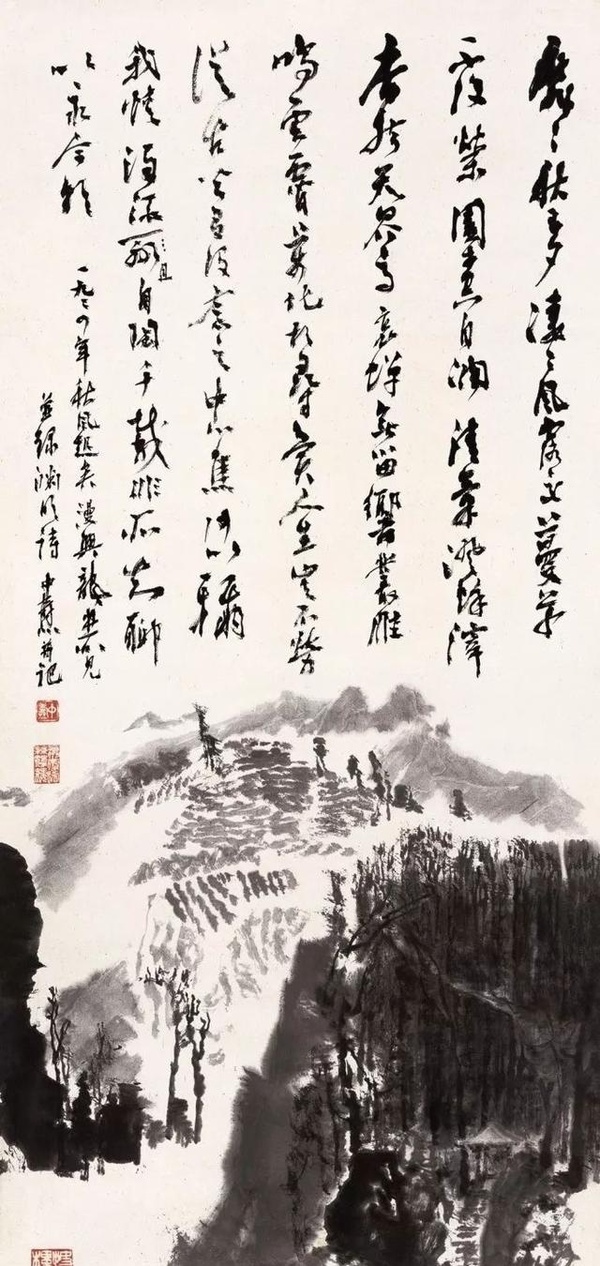 靡〻秋已夕淒〻風露交蔓草
不復榮園木空自凋清氣澄餘滓
杳然天界高哀蟬無留響叢雁
鳴雲霄萬化相尋異人生豈不勞
從古皆有沒念之中心焦何以稱
我情濁酒且自陶千載非所知聊
以永今朝
一九七四年秋風起矣漫興
並錄淵明詩 并記